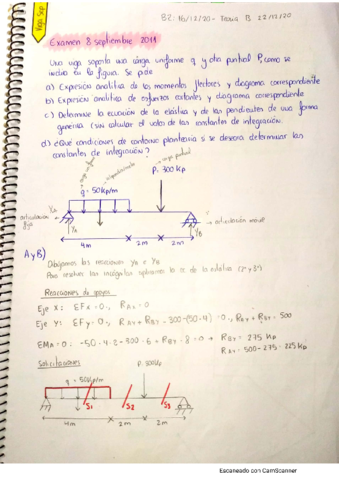 Viga Sep
82. 16/12/20 - Tema B 22/12/20
Examen 8 septiembre 2011
Una viga soporta una carga uniforme q y otra puntual P, como se
indica en la figura. Se pide
a) Expresión analítica de los momentos flectores y diagrama correspondiente
b) Expresión analítica de esfuerzos cortantes y diagrama correspondiente
c) Determine la ecuación de la elástica y de las pendientes de una forma
genérica (sin calcular el valor de las constantes de integración).
d) ¿Qué condiciones de contorno plantearía si se deseara determinar las
constantes de integración?
carga puntual
P. 300 Kp
q = 50Kp/m
YA
articulación
fija
YA
YB
articulación móvil
4m
2m
2m
A y B)
Dibujamos las reacciones YA e YB
Para resolver las incógnitas aplicamos la ec de la estática
Reacciones de apoyos
Eje X: ΣFx = 0, RAx = 0
Eje Y: ΣFy = 0, RAY + RBY - 300 - (50·4) = 0, RAY + RBY = 500
ΣMA = 0: -50·4·2 - 300·6 + RBY·8 = 0 → RBY = 275 Kp
RAY = 500 - 275 = 225 Kp
Solicitaciones
P. 300Kp
q = 50Kp/m
S1
S2
S3
4m
2m
2m
Escaneado con CamScanner